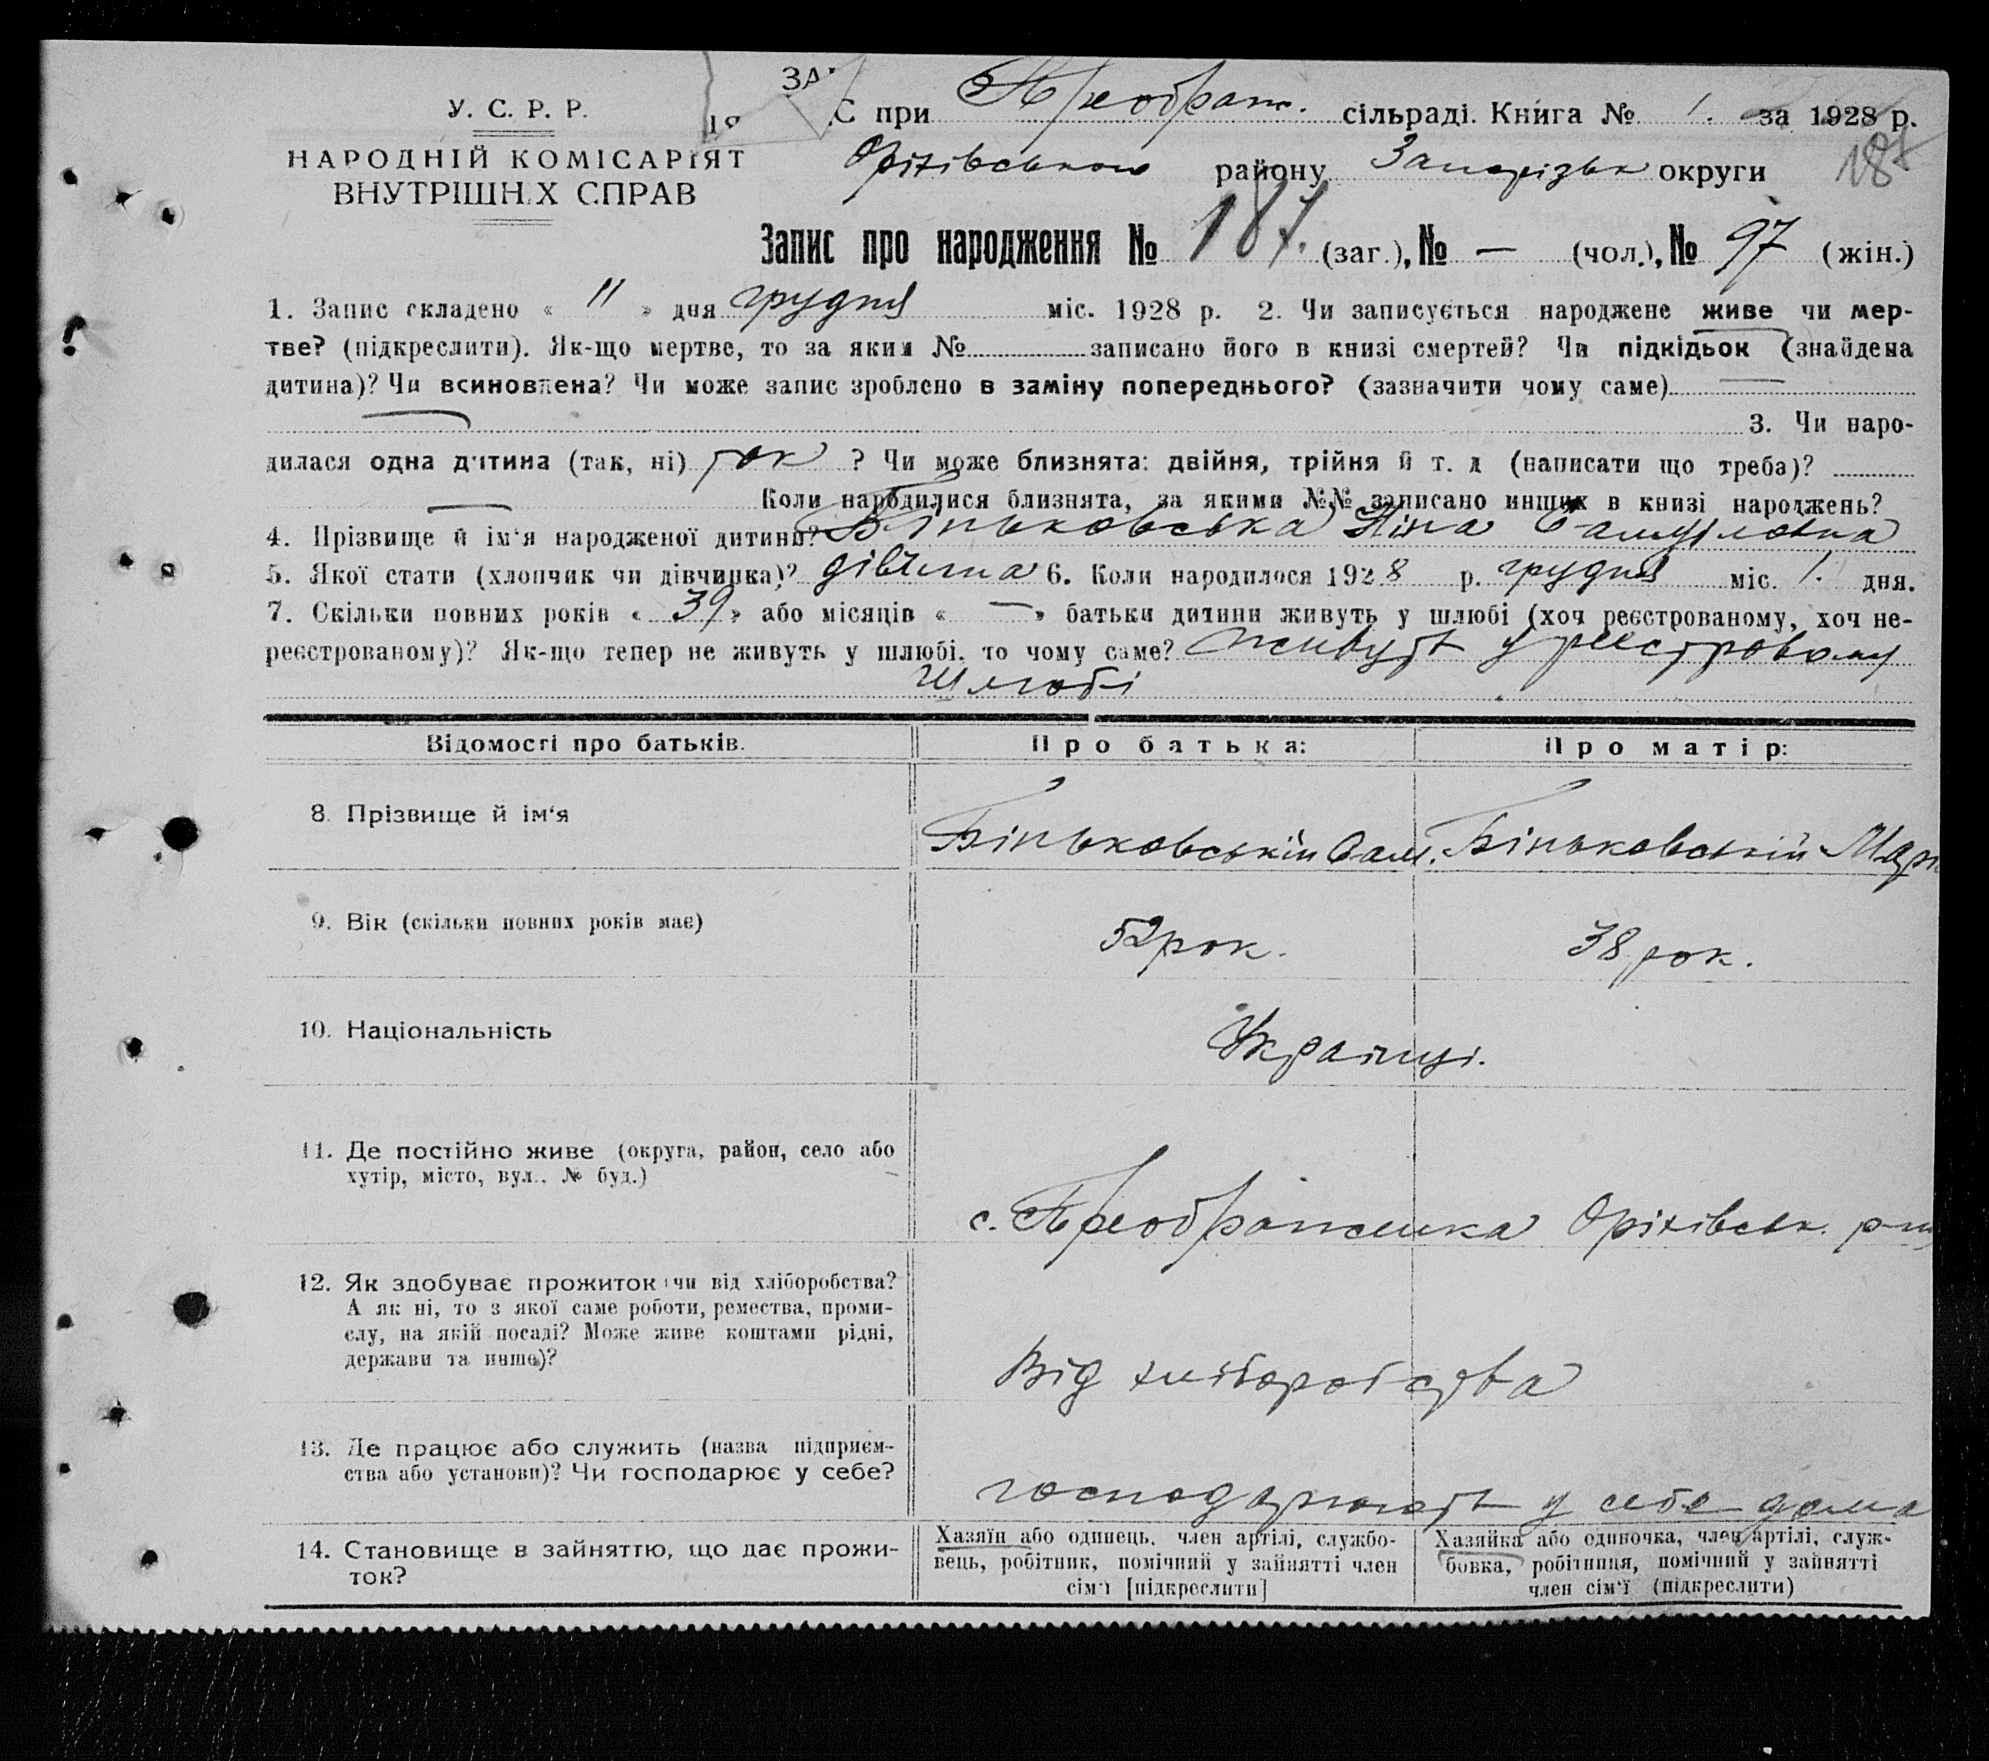 У. С. Р. Р.
НАРОДНІЙ КОМІСАРІЯТ
ВНУТРІШНІХ СПРАВ
ЗАГС при Преображ. сільраді. Книга № 1. за 1928 р.
Оріхівського району Запорізьк округи
187
Запис про народження № 187. (заг.), № — (чол.), № 97 (жін.)
1. Запис складено « 11 » дня грудня міс. 1928 р. 2. Чи записується народжене живе чи мер-
тве? (підкреслити). Як-що мертве, то за яким № записано його в книзі смертей? Чи підкідьок (знайдена
дитина)? Чи всиновлена? Чи може запис зроблено в заміну попереднього? (зазначити чому саме) —
3. Чи наро-
дилася одна дитина (так, ні) так ? Чи може близнята: двійня, трійня й т. д (написати що треба)?
— Коли народилися близнята, за якими №№ записано инших в книзі народжень?
4. Прізвище й ім‘я народженої дитини? Біньковська Ніна Самуіловна
5. Якої стати (хлопчик чи дівчинка)? дівчина 6. Коли народилося 1928 р. грудня міс. 1. дня.
7. Скільки повних років « 39 » або місяців « — » батьки дитини живуть у шлюбі (хоч реєстрованому, хоч не-
реєстрованому)? Як-що тепер не живуть у шлюбі, то чому саме? живуть у реєстровому
шлюбі
Відомості про батьків. Про батька: Про матір:
8. Прізвище й ім‘я Біньковській Сам. Біньковській Мар
9. Вік (скільки повних років має) 52 рок. 38 рок.
10. Національність Українці.
11. Де постійно живе (округа, район, село або
хутір, місто, вул., № буд.)
с. Преображенка Оріхівськ. р-ну
12. Як здобуває прожиток (чи від хліборобства?
А як ні, то з якої саме роботи, ремества, проми-
слу, на якій посаді? Може живе коштами рідні,
держави та инше)?
Від хліборобства
13. Де працює або служить (назва підприєм-
ства або установи)? Чи господарює у себе?
господарюють у себе дома
14. Становище в зайняттю, що дає прожи-
ток?
Хазяїн або одинець, член артілі, службо-
вець, робітник, помічний у зайнятті член
сім‘ї [підкреслити]
Хазяйка або одиночка, член артілі, служ-
бовка, робітниця, помічний у зайнятті
член сім‘ї (підкреслити)